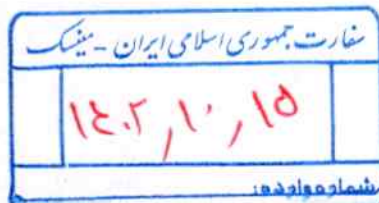 سفارت جمهوری اسلامی ایران - مینسک
۱۴۰۲٫۱۰٫۱۵
شماره وارده: